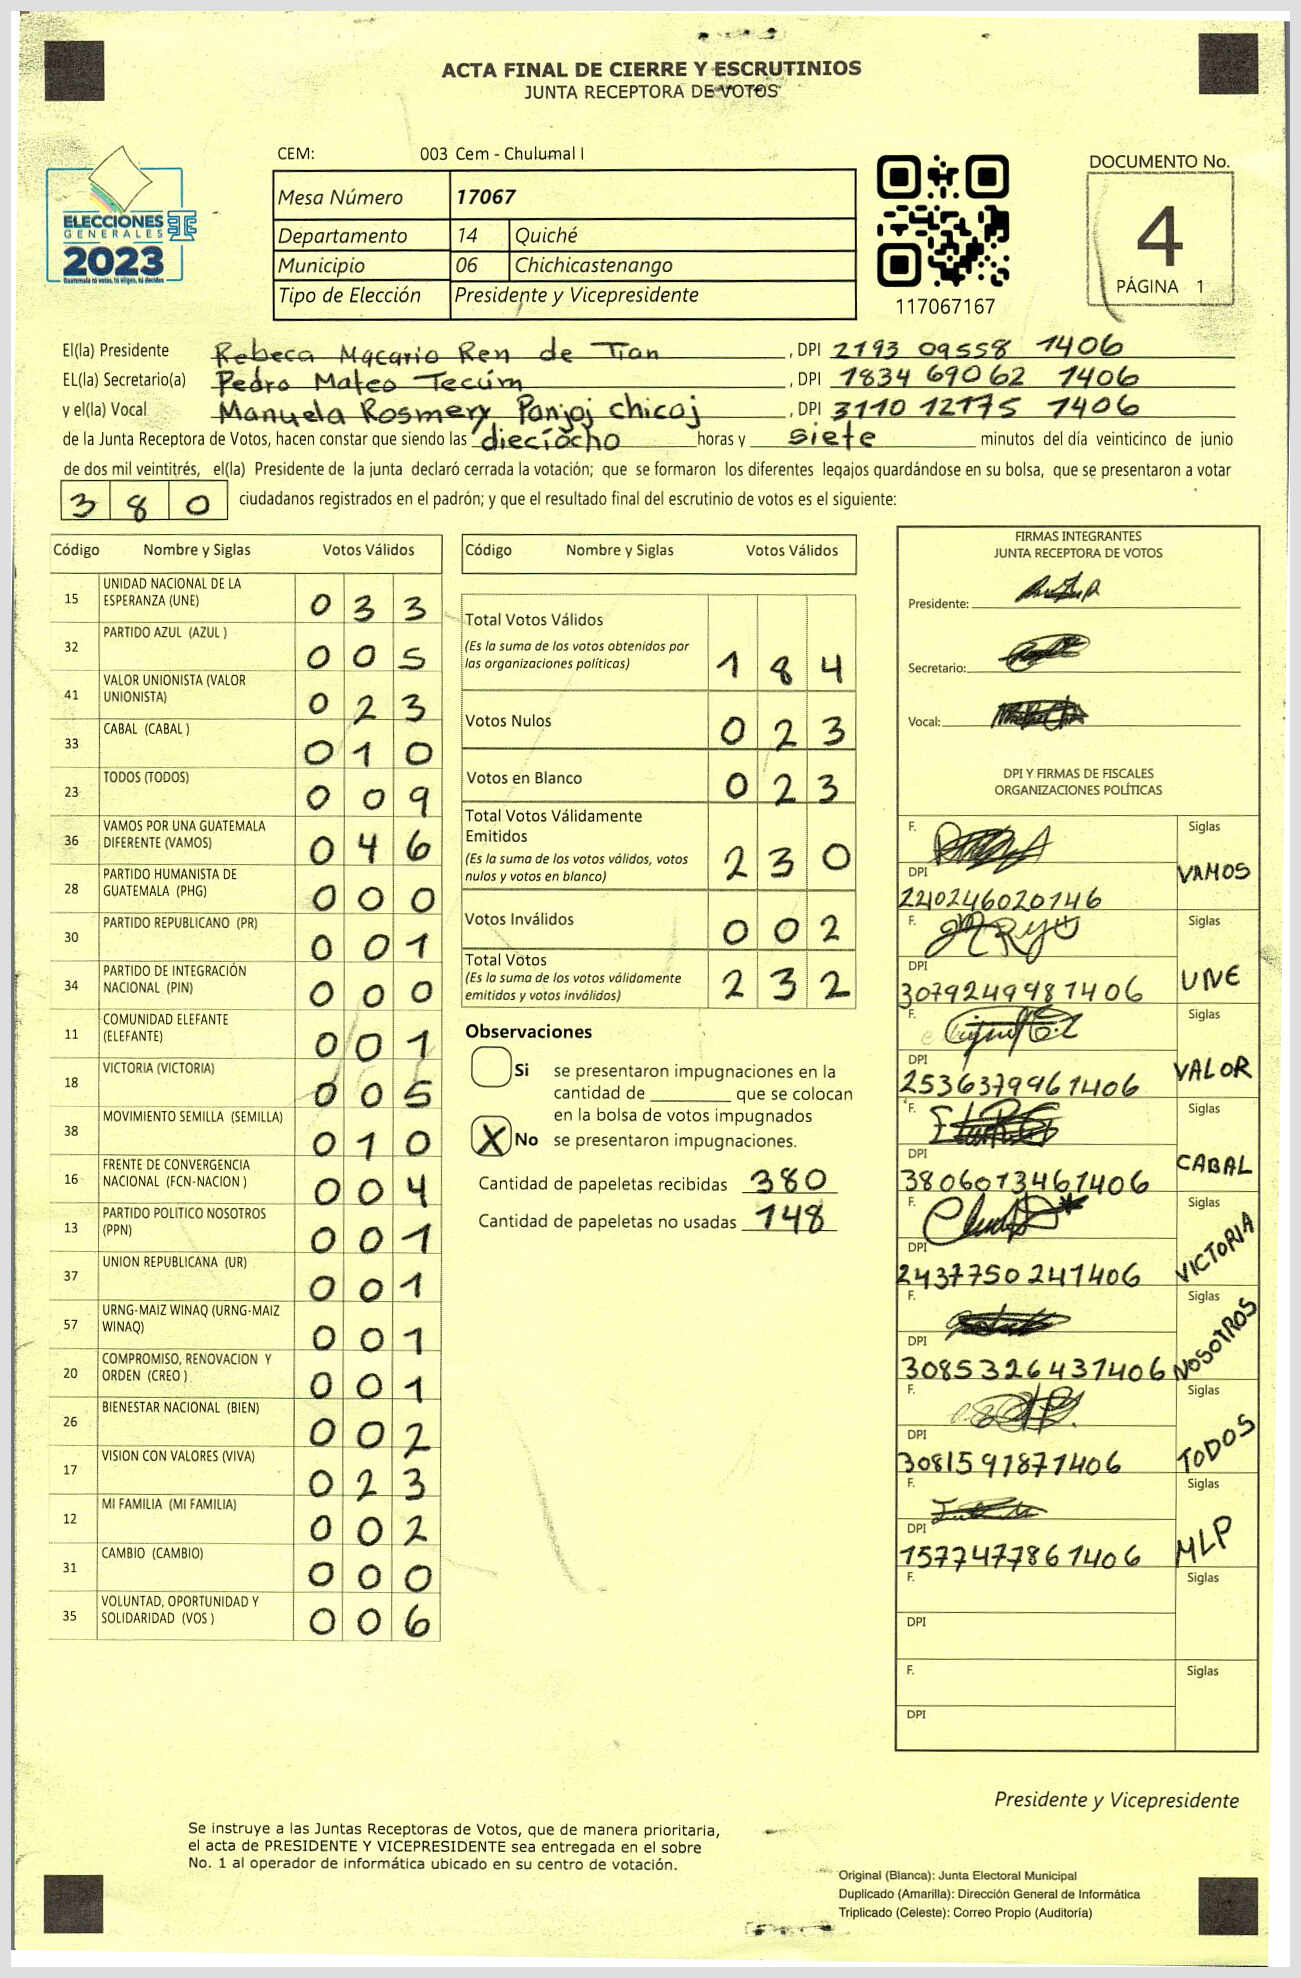 ACTA FINAL DE CIERRE Y ESCRUTINIOS
JUNTA RECEPTORA DE VOTOS
ELECCIONES
GENERALES
2023
Guatemala tú votas, tú eliges, tú decides
CEM: 003 Cem - Chulumal I
Mesa Número 17067
Departamento 14 Quiché
Municipio 06 Chichicastenango
Tipo de Elección Presidente y Vicepresidente
117067167
DOCUMENTO No.
4
PÁGINA 1
El(la) Presidente Rebeca Macario Ren de Tian, DPI 2193 09558 1406
EL(la) Secretario(a) Pedro Mateo Tecúm, DPI 1834 69062 1406
y el(la) Vocal Manuela Rosmery Panjoj Chicoj, DPI 3110 12175 1406
de la Junta Receptora de Votos, hacen constar que siendo las dieciocho horas y siete minutos del día veinticinco de junio
de dos mil veintitrés, el(la) Presidente de la junta declaró cerrada la votación; que se formaron los diferentes legajos guardándose en su bolsa, que se presentaron a votar
380 ciudadanos registrados en el padrón; y que el resultado final del escrutinio de votos es el siguiente:
Código Nombre y Siglas Votos Válidos
15 UNIDAD NACIONAL DE LA ESPERANZA (UNE) 033
32 PARTIDO AZUL (AZUL ) 005
41 VALOR UNIONISTA (VALOR UNIONISTA) 023
33 CABAL (CABAL ) 010
23 TODOS (TODOS) 009
36 VAMOS POR UNA GUATEMALA DIFERENTE (VAMOS) 046
28 PARTIDO HUMANISTA DE GUATEMALA (PHG) 000
30 PARTIDO REPUBLICANO (PR) 001
34 PARTIDO DE INTEGRACIÓN NACIONAL (PIN) 000
11 COMUNIDAD ELEFANTE (ELEFANTE) 001
18 VICTORIA (VICTORIA) 005
38 MOVIMIENTO SEMILLA (SEMILLA) 010
16 FRENTE DE CONVERGENCIA NACIONAL (FCN-NACION ) 004
13 PARTIDO POLITICO NOSOTROS (PPN) 001
37 UNION REPUBLICANA (UR) 001
57 URNG-MAIZ WINAQ (URNG-MAIZ WINAQ) 001
20 COMPROMISO, RENOVACION Y ORDEN (CREO ) 001
26 BIENESTAR NACIONAL (BIEN) 002
17 VISION CON VALORES (VIVA) 023
12 MI FAMILIA (MI FAMILIA) 002
31 CAMBIO (CAMBIO) 000
35 VOLUNTAD, OPORTUNIDAD Y SOLIDARIDAD (VOS ) 006
Código Nombre y Siglas Votos Válidos
Total Votos Válidos
(Es la suma de los votos obtenidos por
las organizaciones políticas) 184
Votos Nulos 023
Votos en Blanco 023
Total Votos Válidamente
Emitidos
(Es la suma de los votos válidos, votos
nulos y votos en blanco) 230
Votos Inválidos 002
Total Votos
(Es la suma de los votos válidamente
emitidos y votos inválidos) 232
Observaciones
Si se presentaron impugnaciones en la
cantidad de _________ que se colocan
en la bolsa de votos impugnados
X No se presentaron impugnaciones.
Cantidad de papeletas recibidas 380
Cantidad de papeletas no usadas 148
FIRMAS INTEGRANTES
JUNTA RECEPTORA DE VOTOS
Presidente:
Secretario:
Vocal:
DPI Y FIRMAS DE FISCALES
ORGANIZACIONES POLÍTICAS
F. Siglas
DPI VAMOS
240246020146
F. Siglas
DPI UNE
3079249981406
F. Siglas
DPI VALOR
2536379961406
F. Siglas
DPI CABAL
3806013461406
F. Siglas
DPI VICTORIA
2437750241406
F. Siglas
DPI NOSOTROS
3085326431406
F. Siglas
DPI TODOS
3081591871406
F. Siglas
DPI MLP
1577477861406
F. Siglas
DPI
F. Siglas
DPI
Presidente y Vicepresidente
Se instruye a las Juntas Receptoras de Votos, que de manera prioritaria,
el acta de PRESIDENTE Y VICEPRESIDENTE sea entregada en el sobre
No. 1 al operador de informática ubicado en su centro de votación.
Original (Blanca): Junta Electoral Municipal
Duplicado (Amarilla): Dirección General de Informática
Triplicado (Celeste): Correo Propio (Auditoría)